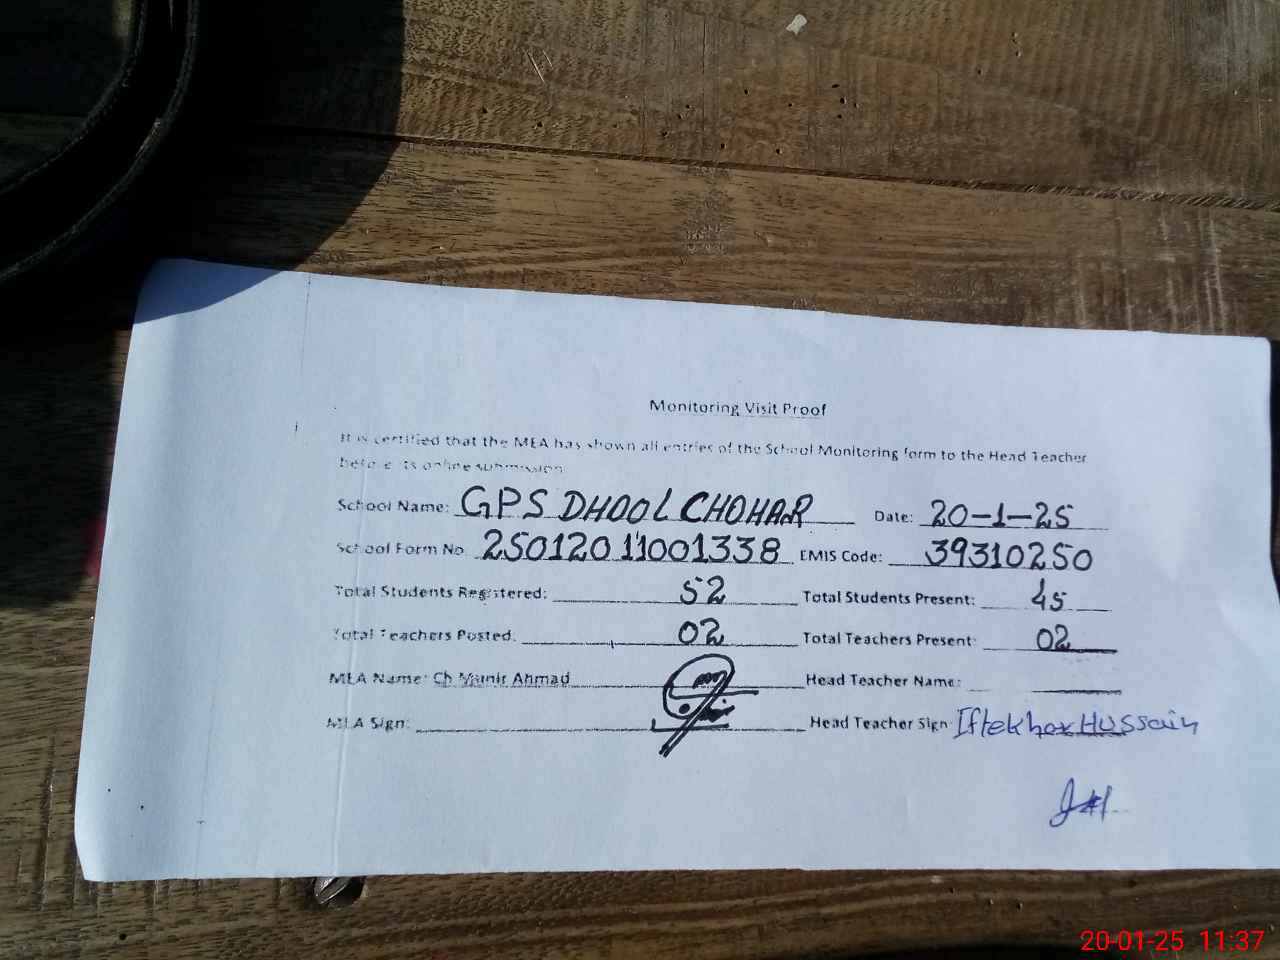 Monitoring Visit Proof
It is certified that the MEA has shown all entries of the School Monitoring form to the Head Teacher
before its online submission
School Name: GPS DHOOL CHOHAR Date: 20-1-25
School Form No 25012011001338 EMIS Code: 39310250
Total Students Registered: 52 Total Students Present: 45
Total Teachers Posted: 02 Total Teachers Present: 02
MEA Name: Ch Munir Ahmad Head Teacher Name:
MEA Sign: Head Teacher Sign: Iftekhar Hussain
20-01-25 11:37